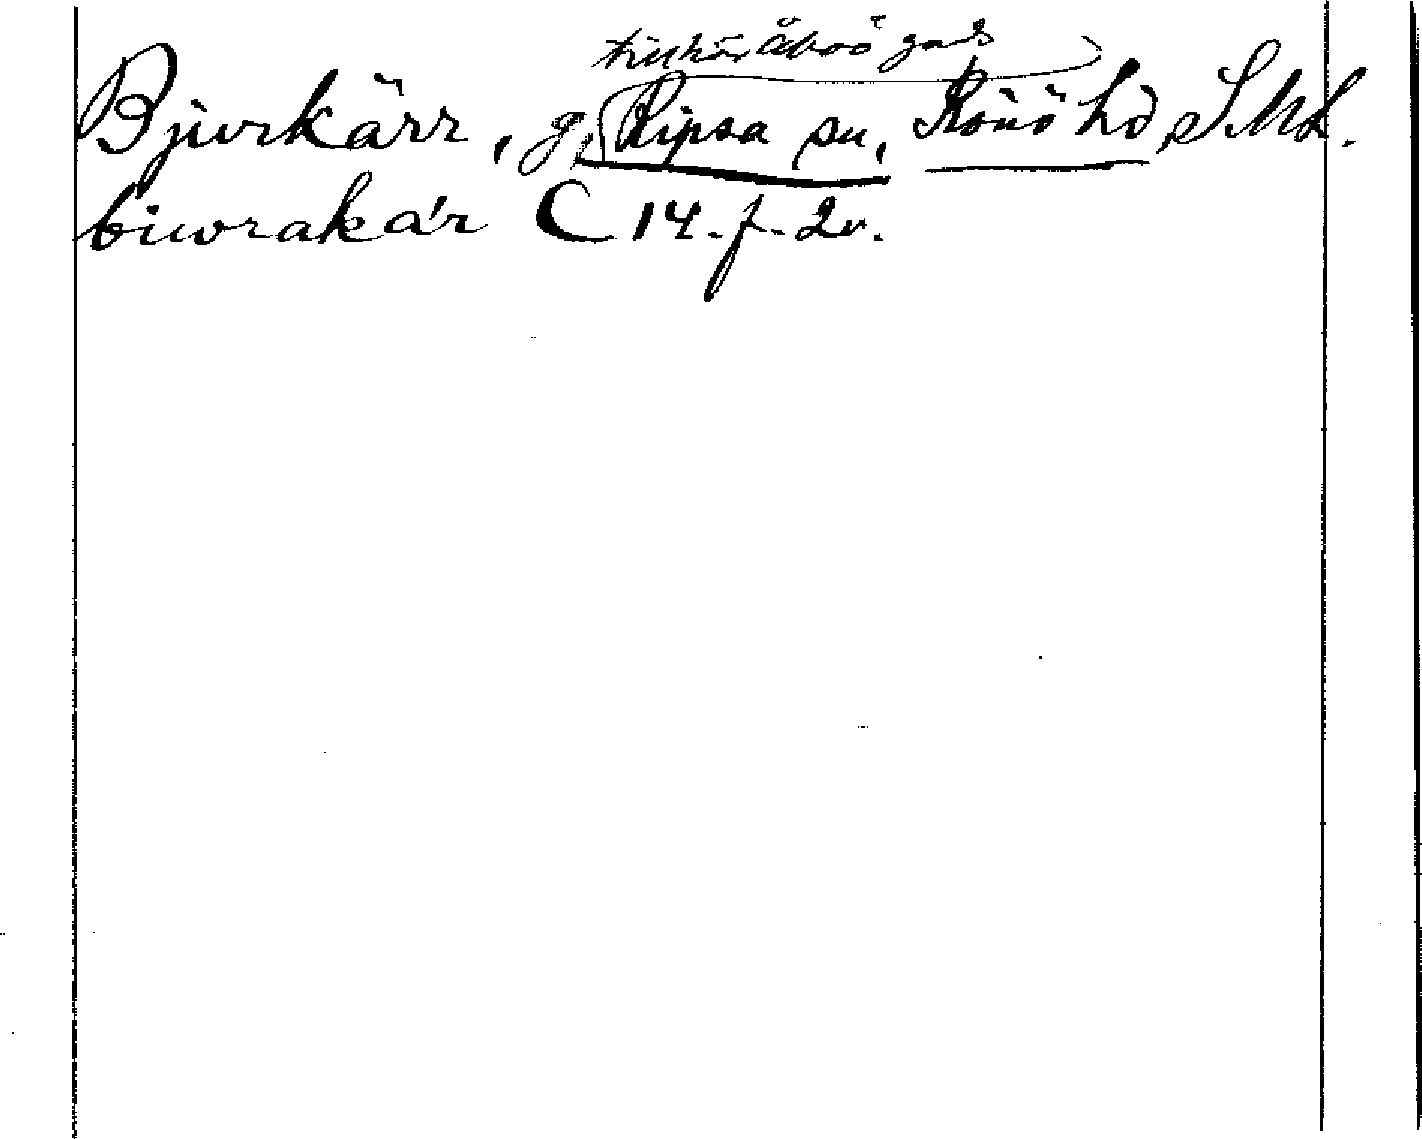 tillhör Åboö gods
Bjurkärr, g. Ripsa sn, Rönö hd, SML.
biurakär C 14. f. 2v.